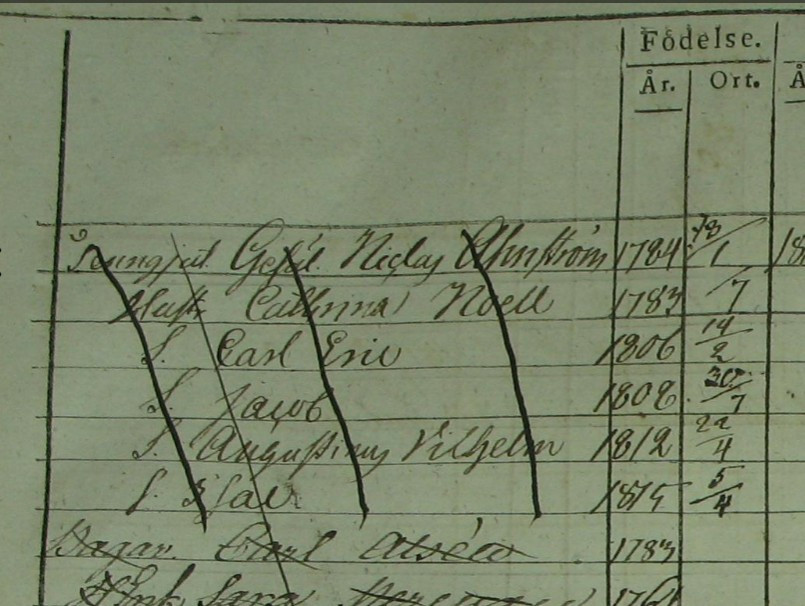 Födelse.
År. Ort. Å
Gesäl. Niclas Ahnström 1784 18/1 18
Hust. Cathrina Noell 1783 /7
S. Carl Eric 1806 14/2
S. Jacob 1808 30/7
S. Augustinus Vilhelm 1812 22/4
S. Isac 1815 5/4
Carl 1783
Enk. Sara 176